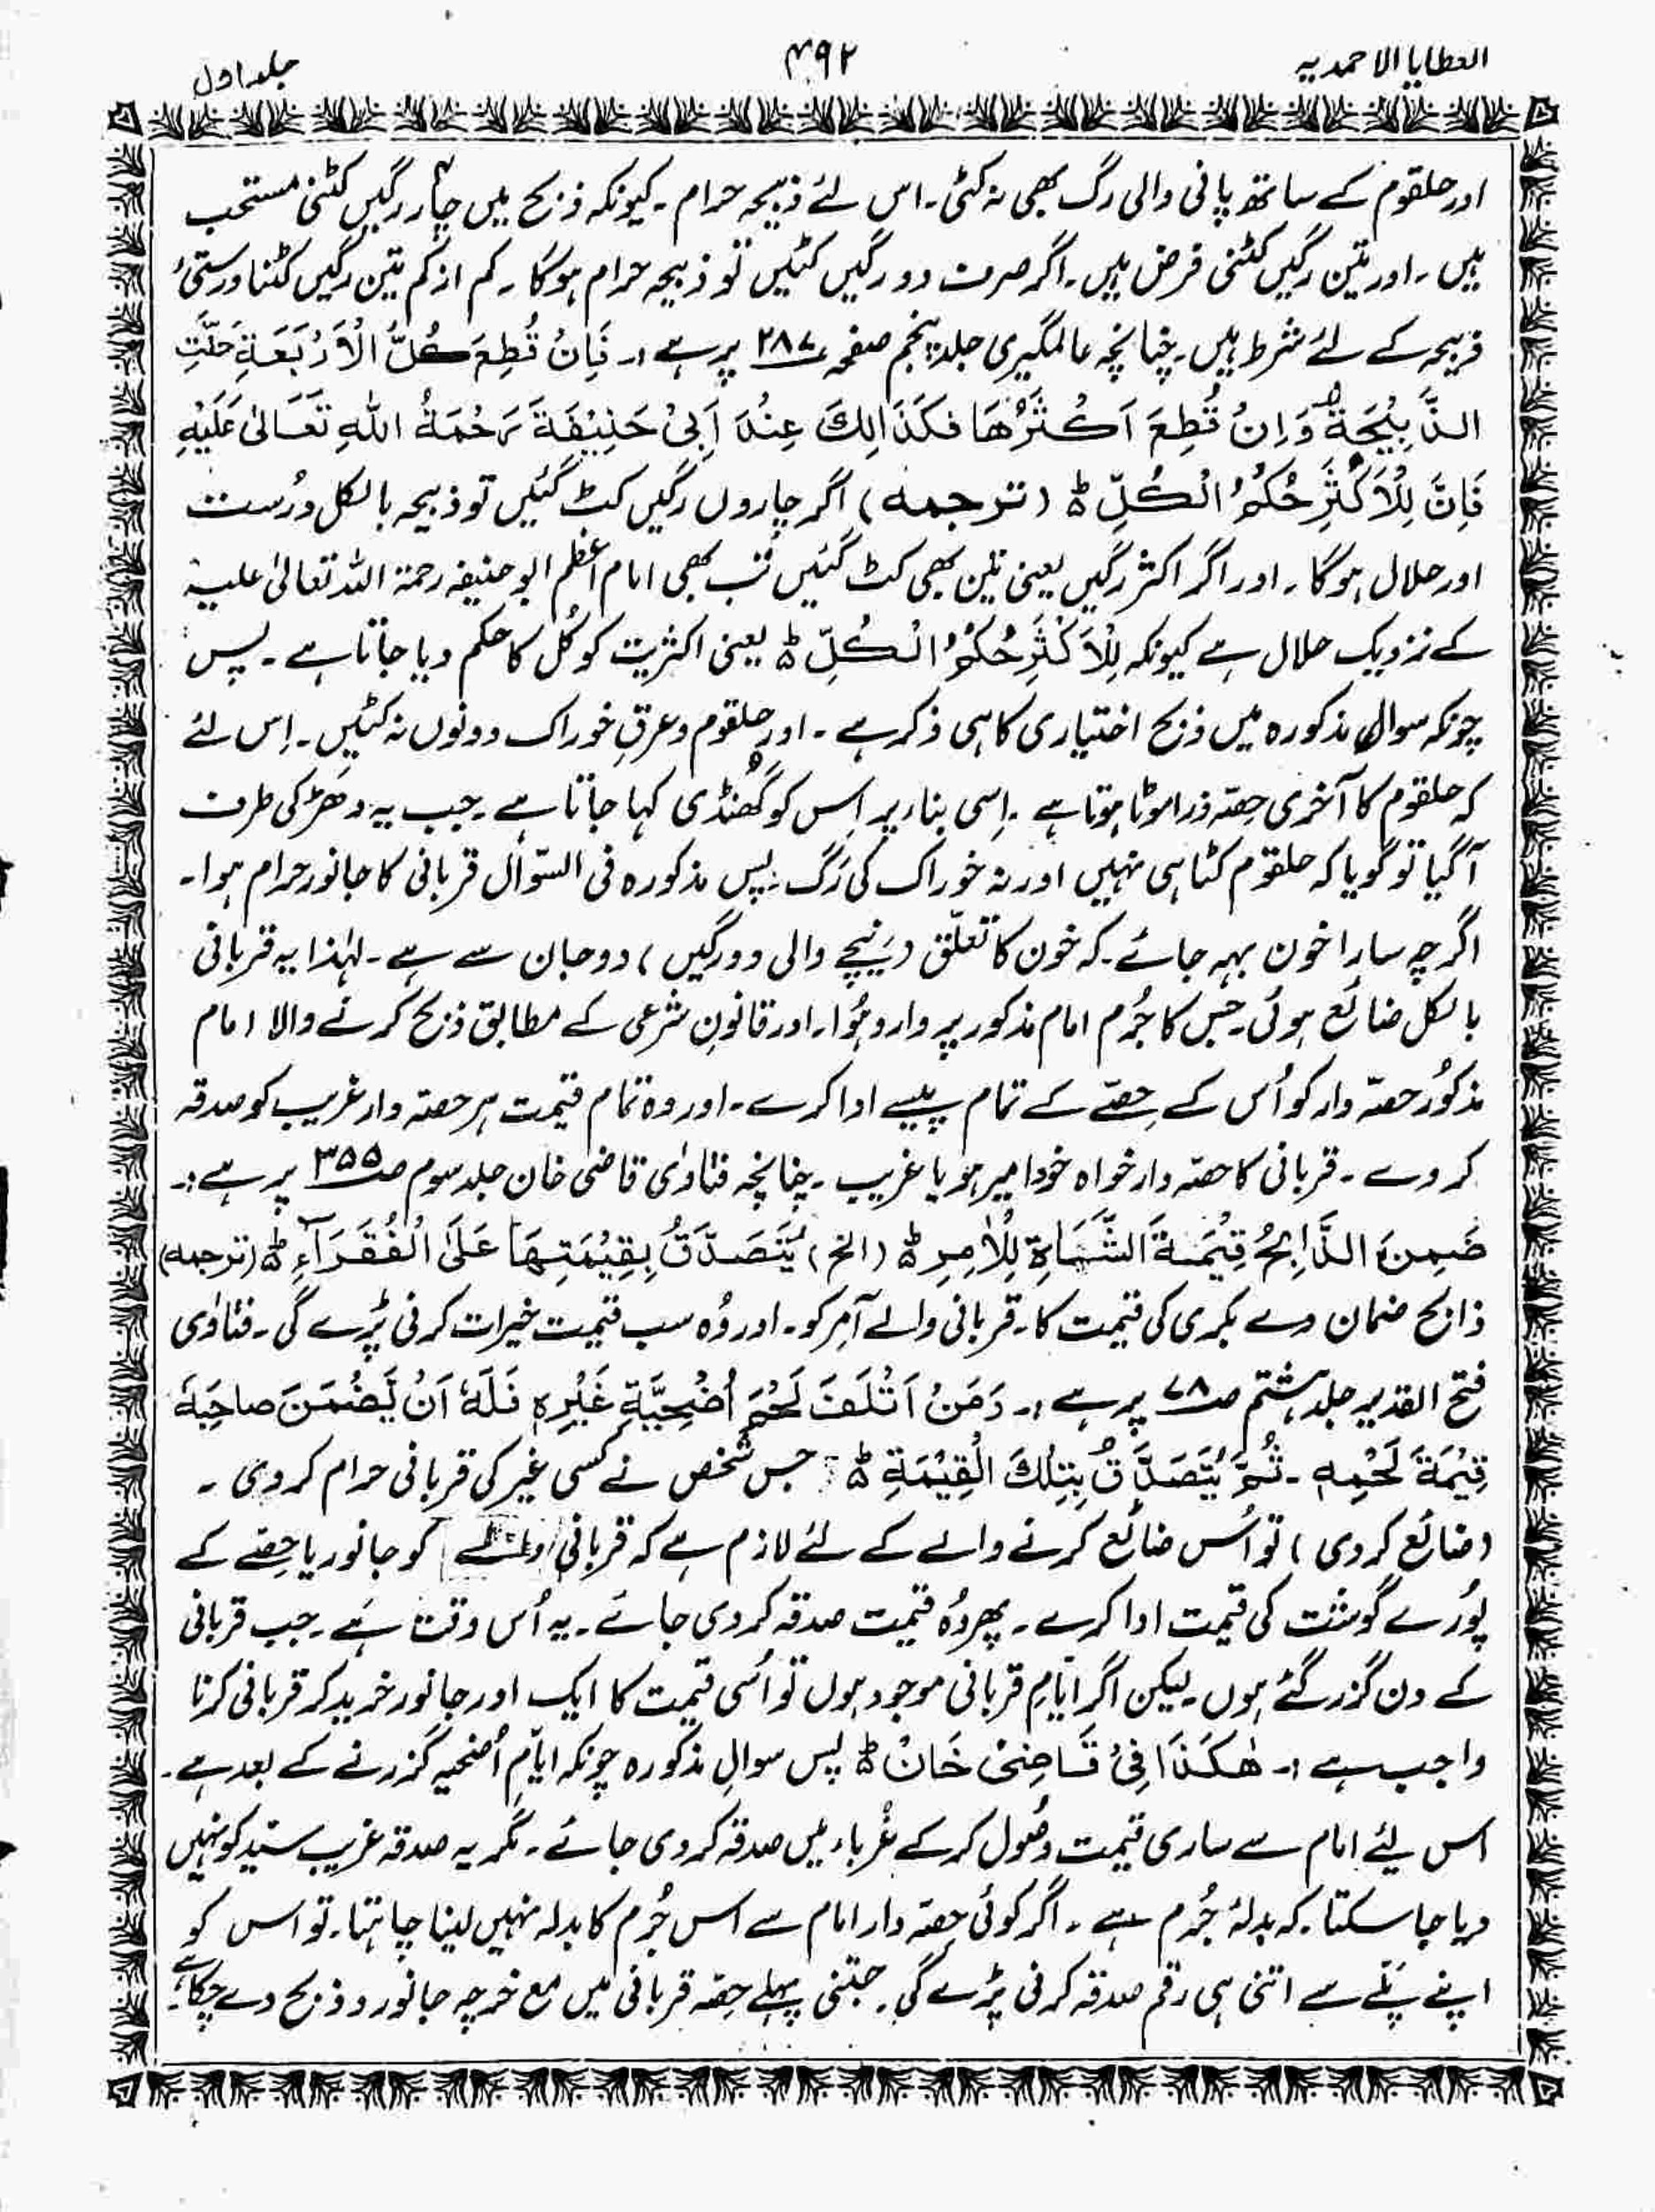 العطایا الاحمدیہ
۴۹۲
جلد اول
اور حلقوم کے ساتھ پانی والی رگ بھی نہ کٹی۔ اس لئے ذبیحہ حرام۔ کیونکہ ذبح میں چار رگیں کٹنی مستحب
ہیں۔ اور تین رگیں کٹنی فرض ہیں۔ اگر صرف دو رگیں کٹیں تو ذبیحہ حرام ہوگا۔ کم از کم تین رگیں کٹنا درستیٔ
ذبیحہ کے لئے شرط ہیں۔ چنانچہ عالمگیری جلد پنجم صفحہ ۲۸۷ پر ہے:۔ فَاِنْ قُطِعَ كُلُّ الْاَرْبَعَةِ حَلَّتِ
الذَّبِيْحَةُ وَاِنْ قُطِعَ اَكْثَرُهَا فَكَذَالِكَ عِنْدَ اَبِيْ حَنِيْفَةَ رَحْمَةُ اللهِ تَعَالىٰ عَلَيْهِ
فَاِنَّ لِلْاَكْثَرِ حُكْمُ الْكُلِّ ط (ترجمہ) اگر چاروں رگیں کٹ گئیں تو ذبیحہ بالکل دُرست
اور حلال ہوگا۔ اور اگر اکثر رگیں یعنی تین بھی کٹ گئیں تب بھی امام اعظم ابو حنیفہ رحمۃ اللہ تعالیٰ علیہ
کے نزدیک حلال ہے کیونکہ لِلْاَكْثَرِ حُكْمُ الْكُلِّ ط یعنی اکثریت کو کُل کا حکم دیا جاتا ہے۔ پس
چونکہ سوال مذکورہ میں ذبح اختیاری کا ہی ذکر ہے۔ اور حلقوم و عرقِ خوراک دونوں نہ کٹیں۔ اِس لئے
کہ حلقوم کا آخری حصّہ ذرا موٹا ہوتا ہے۔ اِسی بناء پر اِس کو گُھنڈی کہا جاتا ہے۔ جب یہ دھَڑ کی طرف
آگیا تو گویا کہ حلقوم کٹا ہی نہیں اور نہ خوراک کی رَگ۔ پس مذکورہ فی السّوال قربانی کا جانور حرام ہوا۔
اگرچہ سارا خون بہہ جائے۔ کہ خون کا تعلّق (نیچے والی دو رگیں) دو جان سے ہے۔ لہٰذا یہ قربانی
بالکل ضائع ہوئی۔ جس کا جُرم امام مذکور پر وارد ہُوا۔ اور قانونِ شرعی کے مطابق ذبح کرنے والا امام
مذکُور حصّہ دار کو اُس کے حِصّے کے تمام پیسے ادا کرے۔ اور وہ تمام قیمت ہر حصّہ دار غریب کو صدقہ
کر دے۔ قربانی کا حصّہ دار خواہ خود امیر ہو یا غریب۔ چنانچہ فتاوٰی قاضی خان جلد سوم صـ ۳۵۵ پر ہے:۔
ضَمِنَ الذَّابِحُ قِيْمَةَ الشَّاةِ لِلْاٰمِرِ ط (الخ) يَتَصَدَّقُ بِقِيْمَتِهَا عَلَى الْفُقَرَآءِ ط (ترجمہ)
ذابح ضمان دے بکری کی قیمت کا۔ قربانی والے آمِر کو۔ اور وُہ سب قیمت خیرات کرنی پڑے گی۔ فتاوٰی
فتح القدیر جلد ہشتم صـ ۷۸ پر ہے:۔ وَمَنْ اَتْلَفَ لَحْمَ اُضْحِيَّةِ غَيْرِهٖ فَلَهٗ اَنْ يَّضْمَنَ صاحِبَهٗ
قِيْمَةَ لَحْمِهٖ۔ ثُمَّ يَتَصَدَّقُ بِتِلْكَ الْقِيْمَةِ ط جس شخص نے کسی غیر کی قربانی حرام کر دی۔
(ضائع کر دی) تو اُس ضائع کرنے والے کے لئے لازم ہے کہ قربانی والے کو جانور یا حِصّے کے
پُورے گوشت کی قیمت ادا کرے۔ پھر وُہ قیمت صدقہ کر دی جائے۔ یہ اُس وقت ہَے۔ جب قربانی
کے دن گزر گئے ہوں۔ لیکن اگر ایّامِ قربانی موجود ہوں تو اُسی قیمت کا ایک اور جانور خرید کر قربانی کرنا
واجب ہے:۔ هٰكَذَا فِيْ قَاضِيْ خَانْ ط پس سوالِ مذکورہ چونکہ ایّامِ اُضحیہ گزرنے کے بعد ہے۔
اس لئے امام سے ساری قیمت وصُول کر کے غُرباء میں صدقہ کر دی جائے۔ مگر یہ صدقہ غریب سیّد کو نہیں
دیا جا سکتا۔ کہ بدلۂ جُرم ہے۔ اگر کوئی حصّہ دار امام سے اس جُرم کا بدلہ نہیں لینا چاہتا۔ تو اس کو
اپنے پلّے سے اتنی ہی رقم صدقہ کرنی پڑے گی۔ جتنی پہلے حِصّہ قربانی میں مع خرچہ جانور و ذبح دے چکا ہے۔